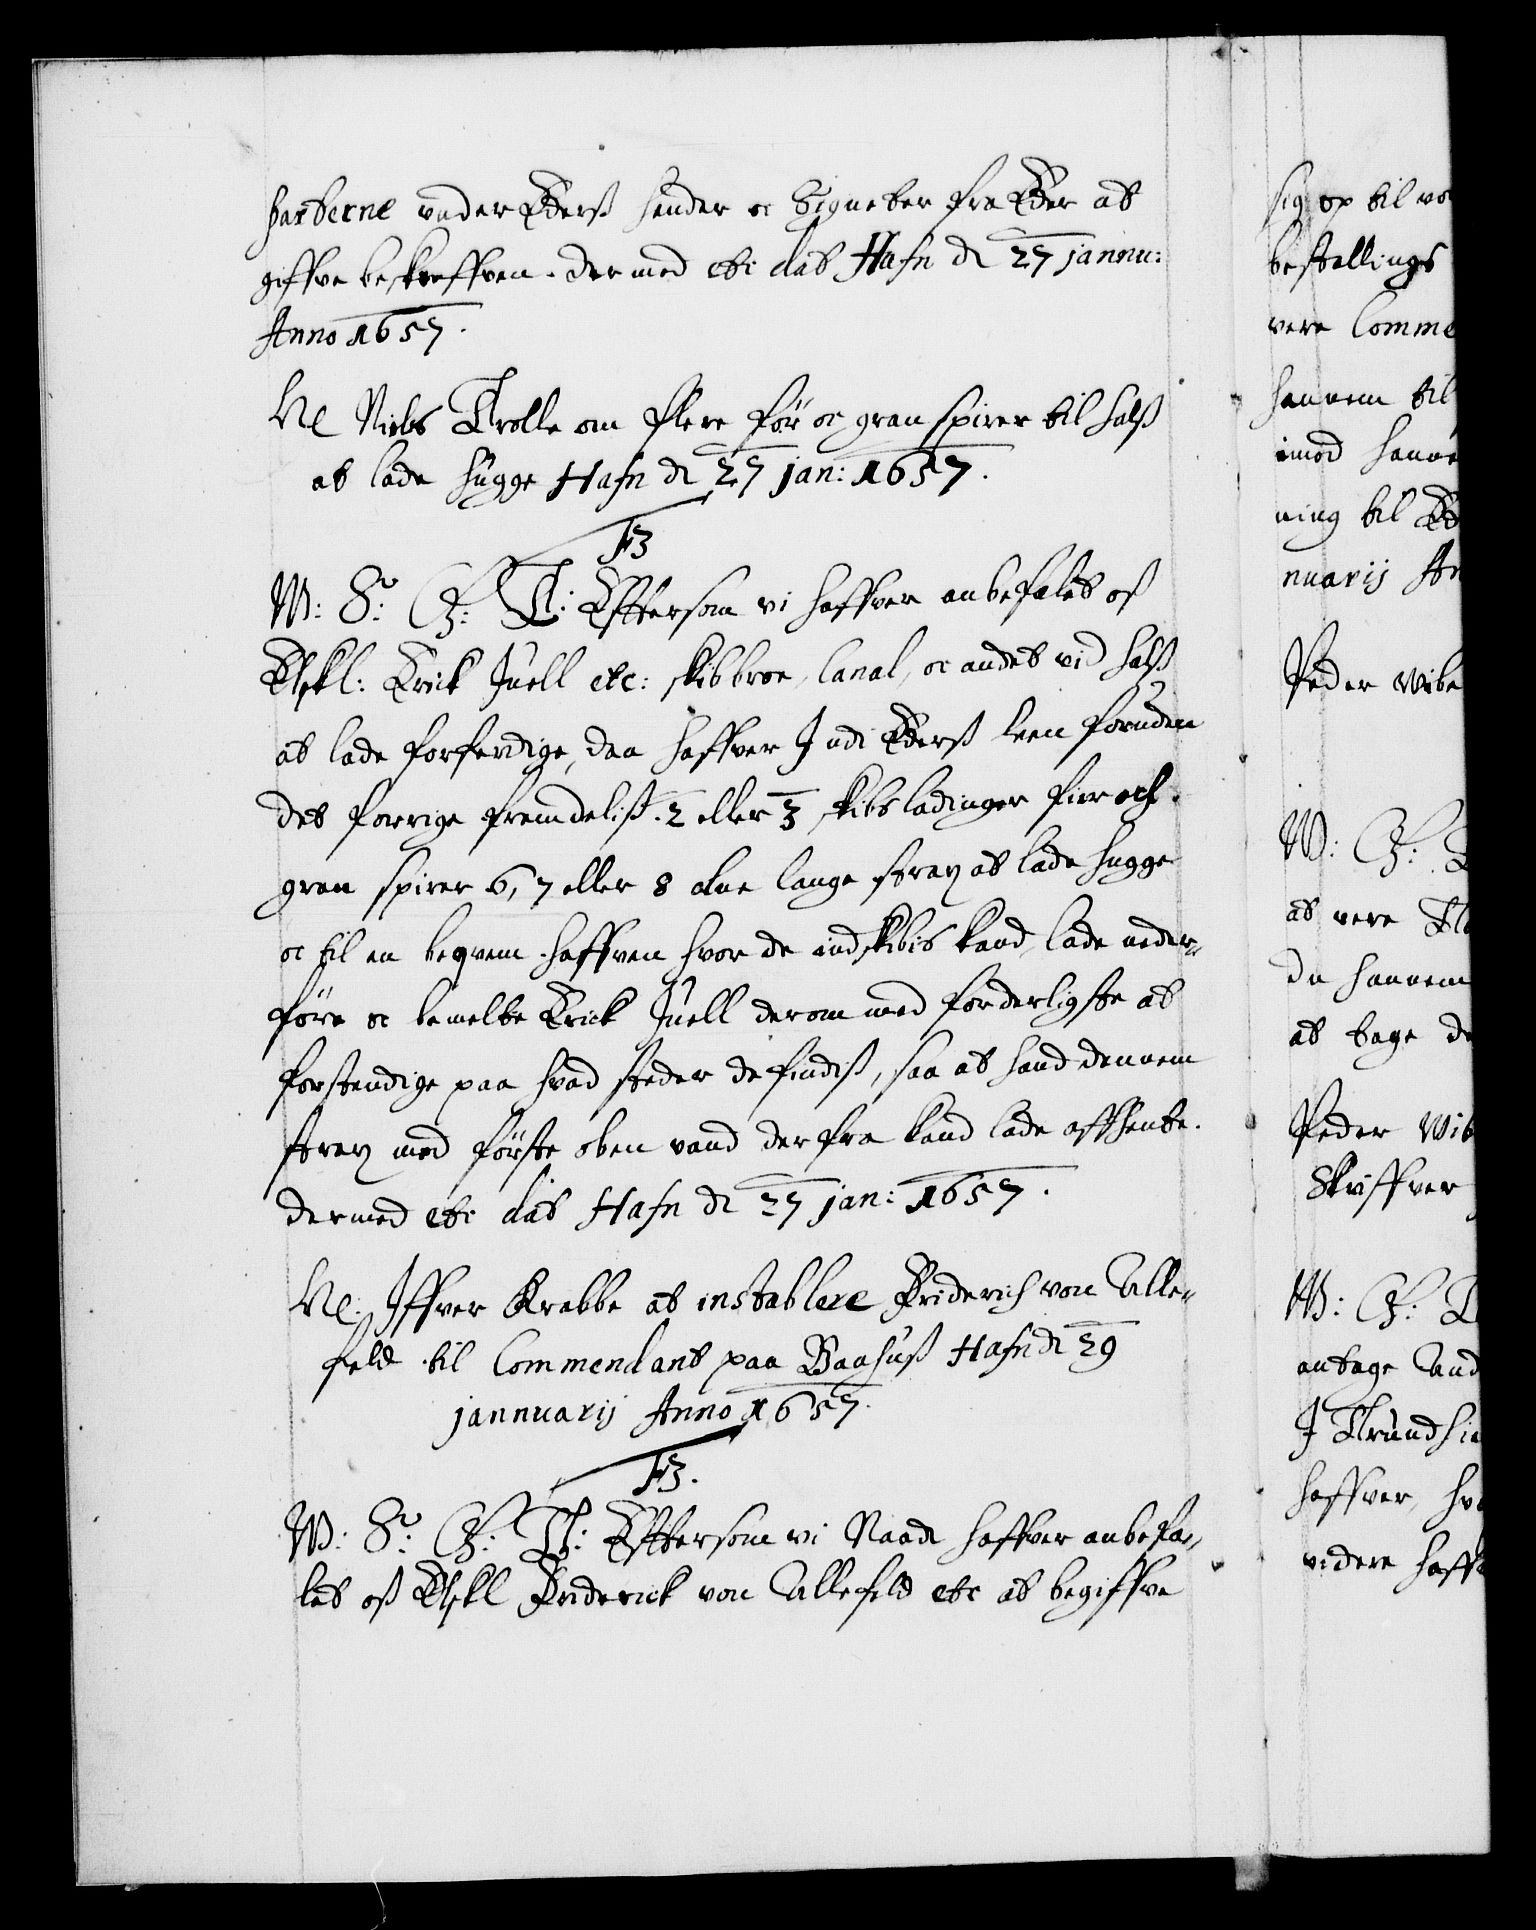 parterne under Eders hender oc Signeter fra Eder at
giffve beskreffven. der med etc dat Hafn d 27 jannu:
Anno 1657.
Ne Niels Trolle om flere för oc gran spirer til Halß
at lade hugge Hafn d 27 jan: 1657.
F3
W: S: G: T: Efftersom vi haffver anbefalet oß
Elskl: Erick Juell etc: skibbroe, Canal, oc andet vid Halß
at lade forferdige, daa haffver I udi Eders leen foruden
det forrige fremdeliß 2 eller 3 skibsladinger fier och
gran spirer 6, 7 eller 8 alne lange strax at lade hugge
oc til en beqvem haffven hvor de indskibis kand lade neder-
före oc bemelte Erick Juell derom med forderligste at
forstendige paa hvad steder de findiß, saa at hand dennem
strax med förste oben vand der fra kand lade affhente.
dermed etc dat Hafn d 27 jan: 1657.
Ne: Iffver Krabbe at instablere Friderich von Alle-
feld til Commendant paa Baahuß Hafn d 29
jannuarij Anno 1657.
F3.
W: S: G: T: Efftersom vi Naad haffver anbefa-
let oß Elskl Friderick von Allefeld etc at begiffve
sig op til vo
bestellings
vere Comme
hannem til
imod hanne
ning til Ed
nuarij An
Peder Wibe
W: G: T
at vere
du hannem
at tage de
Peder Wib
Skriffver
W: G: T
antage And
I Trundhie
haffver, hv
videre haff